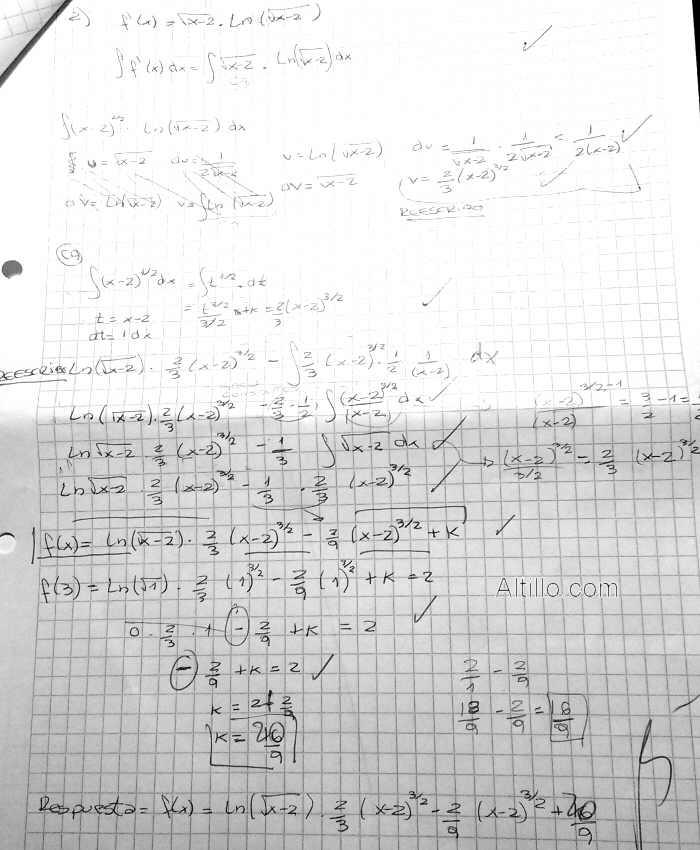 2) f'(x) = √x-2 · Ln(√x-2)
∫f'(x) dx = ∫√x-2 · Ln(√x-2) dx
∫(x-2)^1/2 · Ln(√x-2) dx
u = √x-2 du = 1/2√x-2 v = Ln(√x-2) dv = 1/√x-2 · 1/2√x-2 = 1/2(x-2)
dv = Ln(√x-2) v = ∫Ln(√x-2) dv = √x-2 v = 2/3 (x-2)^3/2
REESCRIBO
∫(x-2)^1/2 dx = ∫t^1/2 · dt
t = x-2 = t^3/2 / 3/2 + k = 2/3 (x-2)^3/2
dt = 1 dx
REESCRIBO Ln(√x-2) · 2/3 (x-2)^3/2 - ∫ 2/3 (x-2)^3/2 · 1/2 · 1/(x-2) dx
Ln(√x-2) · 2/3 (x-2)^3/2 - 2/3 · 1/2 ∫ (x-2)^3/2 / (x-2) dx (x-2)^3/2-1 / (x-2) = 3/2 - 1 =
Ln √x-2 · 2/3 (x-2)^3/2 - 1/3 ∫ √x-2 dx → (x-2)^3/2 / 3/2 = 2/3 (x-2)^3/2
Ln √x-2 · 2/3 (x-2)^3/2 - 1/3 · 2/3 (x-2)^3/2
f(x) = Ln(√x-2) · 2/3 (x-2)^3/2 - 2/9 (x-2)^3/2 + k
f(3) = Ln(√1) · 2/3 (1)^3/2 - 2/9 (1)^3/2 + k = 2
Altillo.com
0 · 2/3 · 1 - 2/9 + k = 2
- 2/9 + k = 2 2/1 - 2/9
k = 2 + 2/9 18/9 - 2/9 = 16/9
k = 20/9
Respuesta = f(x) = Ln(√x-2) · 2/3 (x-2)^3/2 - 2/9 (x-2)^3/2 + 20/9